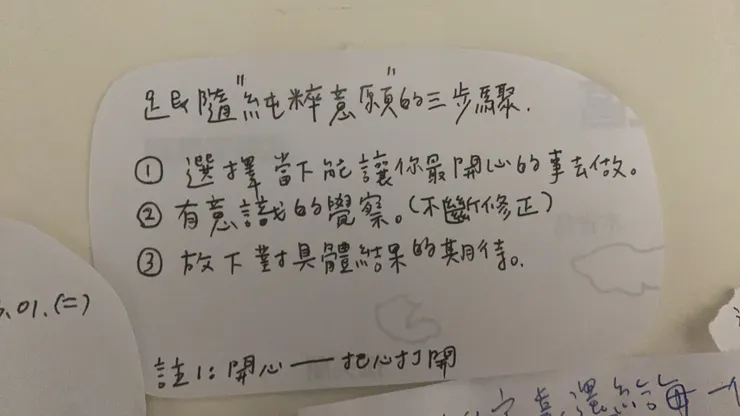 跟隨"純粹意願"的三步驟.
① 選擇當下能讓你最開心的事去做。
② 有意識的覺察。(不斷修正)
③ 放下對具體結果的期待。
.01.(二)
註1: 開心——把心打開
還給每一